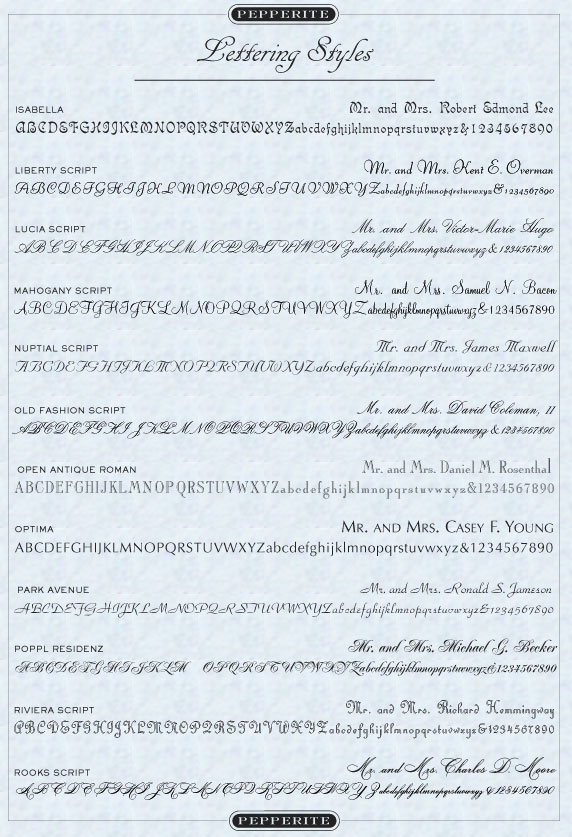 PEPPERITE
Lettering Styles
ISABELLA Mr. and Mrs. Robert Edmond Lee
ABCDEFGHIJKLMNOPQRSTUVWXYZabcdefghijklmnopqrstuvwxyz&1234567890
LIBERTY SCRIPT Mr. and Mrs. Kent E. Overman
ABCDEFGHIJKLMNOPQRSTUVWXYZabcdefghijklmnopqrstuvwxyz&1234567890
LUCIA SCRIPT Mr. and Mrs. Victor-Marie Hugo
ABCDEFGHIJKLMNOPQRSTUVWXYZabcdefghijklmnopqrstuvwxyz&1234567890
MAHOGANY SCRIPT Mr. and Mrs. Samuel N. Bacon
ABCDEFGHIJKLMNOPQRSTUVWXYZabcdefghijklmnopqrstuvwxyz&1234567890
NUPTIAL SCRIPT Mr. and Mrs. James Maxwell
ABCDEFGHIJKLMNOPQRSTUVWXYZabcdefghijklmnopqrstuvwxyz&1234567890
OLD FASHION SCRIPT Mr. and Mrs. David Coleman, II
ABCDEFGHIJKLMNOPQRSTUVWXYZabcdefghijklmnopqrstuvwxyz&1234567890
OPEN ANTIQUE ROMAN Mr. and Mrs. Daniel M. Rosenthal
ABCDEFGHIJKLMNOPQRSTUVWXYZabcdefghijklmnopqrstuvwxyz&1234567890
OPTIMA MR. AND MRS. CASEY F. YOUNG
ABCDEFGHIJKLMNOPQRSTUVWXYZabcdefghijklmnopqrstuvwxyz&1234567890
PARK AVENUE Mr. and Mrs. Ronald S. Jameson
ABCDEFGHIJKLMNOPQRSTUVWXYZabcdefghijklmnopqrstuvwxyz&1234567890
POPPL RESIDENZ Mr. and Mrs. Michael G. Becker
ABCDEFGHIJKLM OPQRSTUVWXYZabcdefghijklmnopqrstuvwxyz&1234567890
RIVIERA SCRIPT Mr. and Mrs. Richard Hemmingway
ABCDEFGHIJKLMNOPQRSTUVWXYZabcdefghijklmnopqrstuvwxyz&1234567890
ROOKS SCRIPT Mr. and Mrs. Charles D. Moore
ABCDEFGHIJKLMNOPQRSTUVWXYZabcdefghijklmnopqrstuvwxyz&1234567890
PEPPERITE